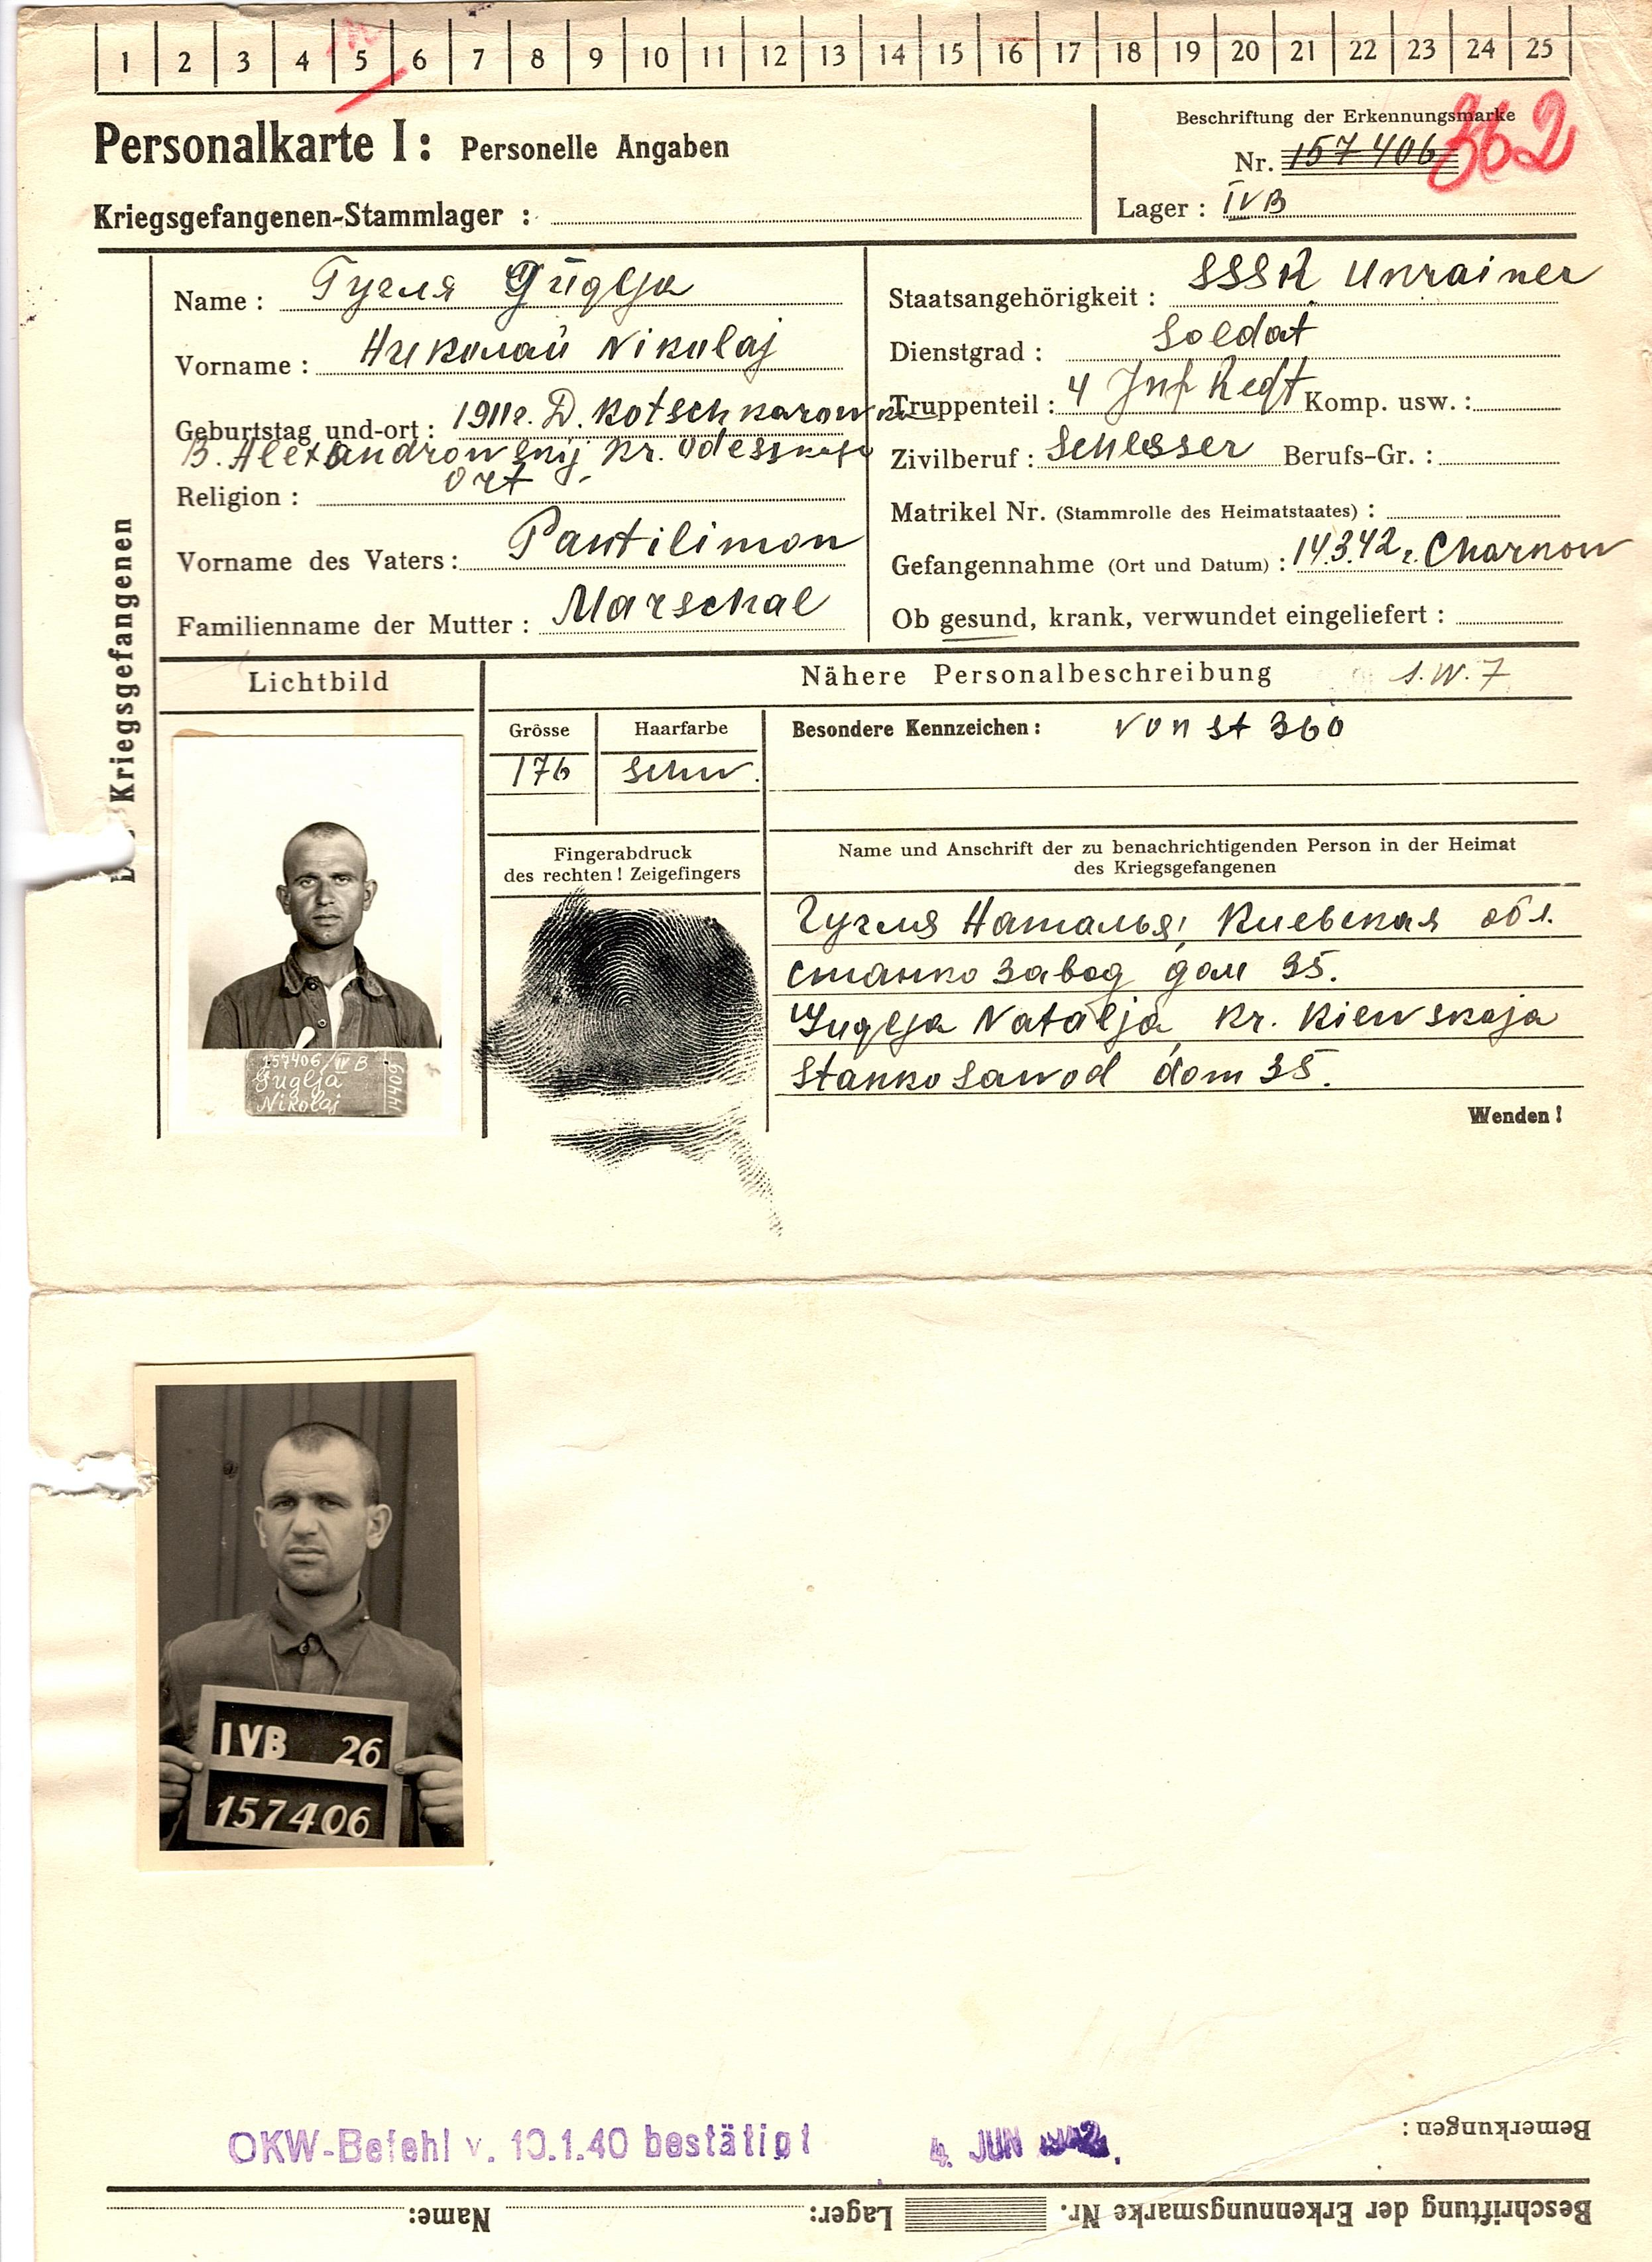 1 2 3 4 5 6 7 8 9 10 11 12 13 14 15 16 17 18 19 20 21 22 23 24 25
Personalkarte I: Personelle Angaben
Beschriftung der Erkennungsmarke
Nr. 157406 362
Kriegsgefangenen-Stammlager :
Lager : IVB
Kriegsgefangenen
Name : Гугля Guglja
Vorname : Николай Nikolaj
Geburtstag und-ort : 1911г. D. Kotschkarowka
B. Alexandrowskij Kr. Odesskaja
Ort
Religion :
Vorname des Vaters : Pantilimon
Familienname der Mutter : Marschal
Staatsangehörigkeit : SSSR Ukrainer
Dienstgrad : Soldat
Truppenteil : 4 Inf Regt Komp. usw. :
Zivilberuf : Schlosser Berufs-Gr. :
Matrikel Nr. (Stammrolle des Heimatstaates) :
Gefangennahme (Ort und Datum) : 14.3.42г. Charkow
Ob gesund, krank, verwundet eingeliefert :
Lichtbild
Nähere Personalbeschreibung S.W.7
Grösse
Haarfarbe
176
schw.
Besondere Kennzeichen : von St 360
Fingerabdruck
des rechten ! Zeigefingers
Name und Anschrift der zu benachrichtigenden Person in der Heimat
des Kriegsgefangenen
Гугля Наталья, Киевская обл.
станко завод дом 35.
Guglja Natalja, Kr. Kiewskaja
Stanko sawod dom 35.
Wenden !
157406/IV B
Guglja
Nikolaj
14406
IVB 26
157406
OKW-Befehl v. 10.1.40 bestätigt
4. JUN 1942
Bemerkungen :
Beschriftung der Erkennungsmarke Nr. Lager: Name: